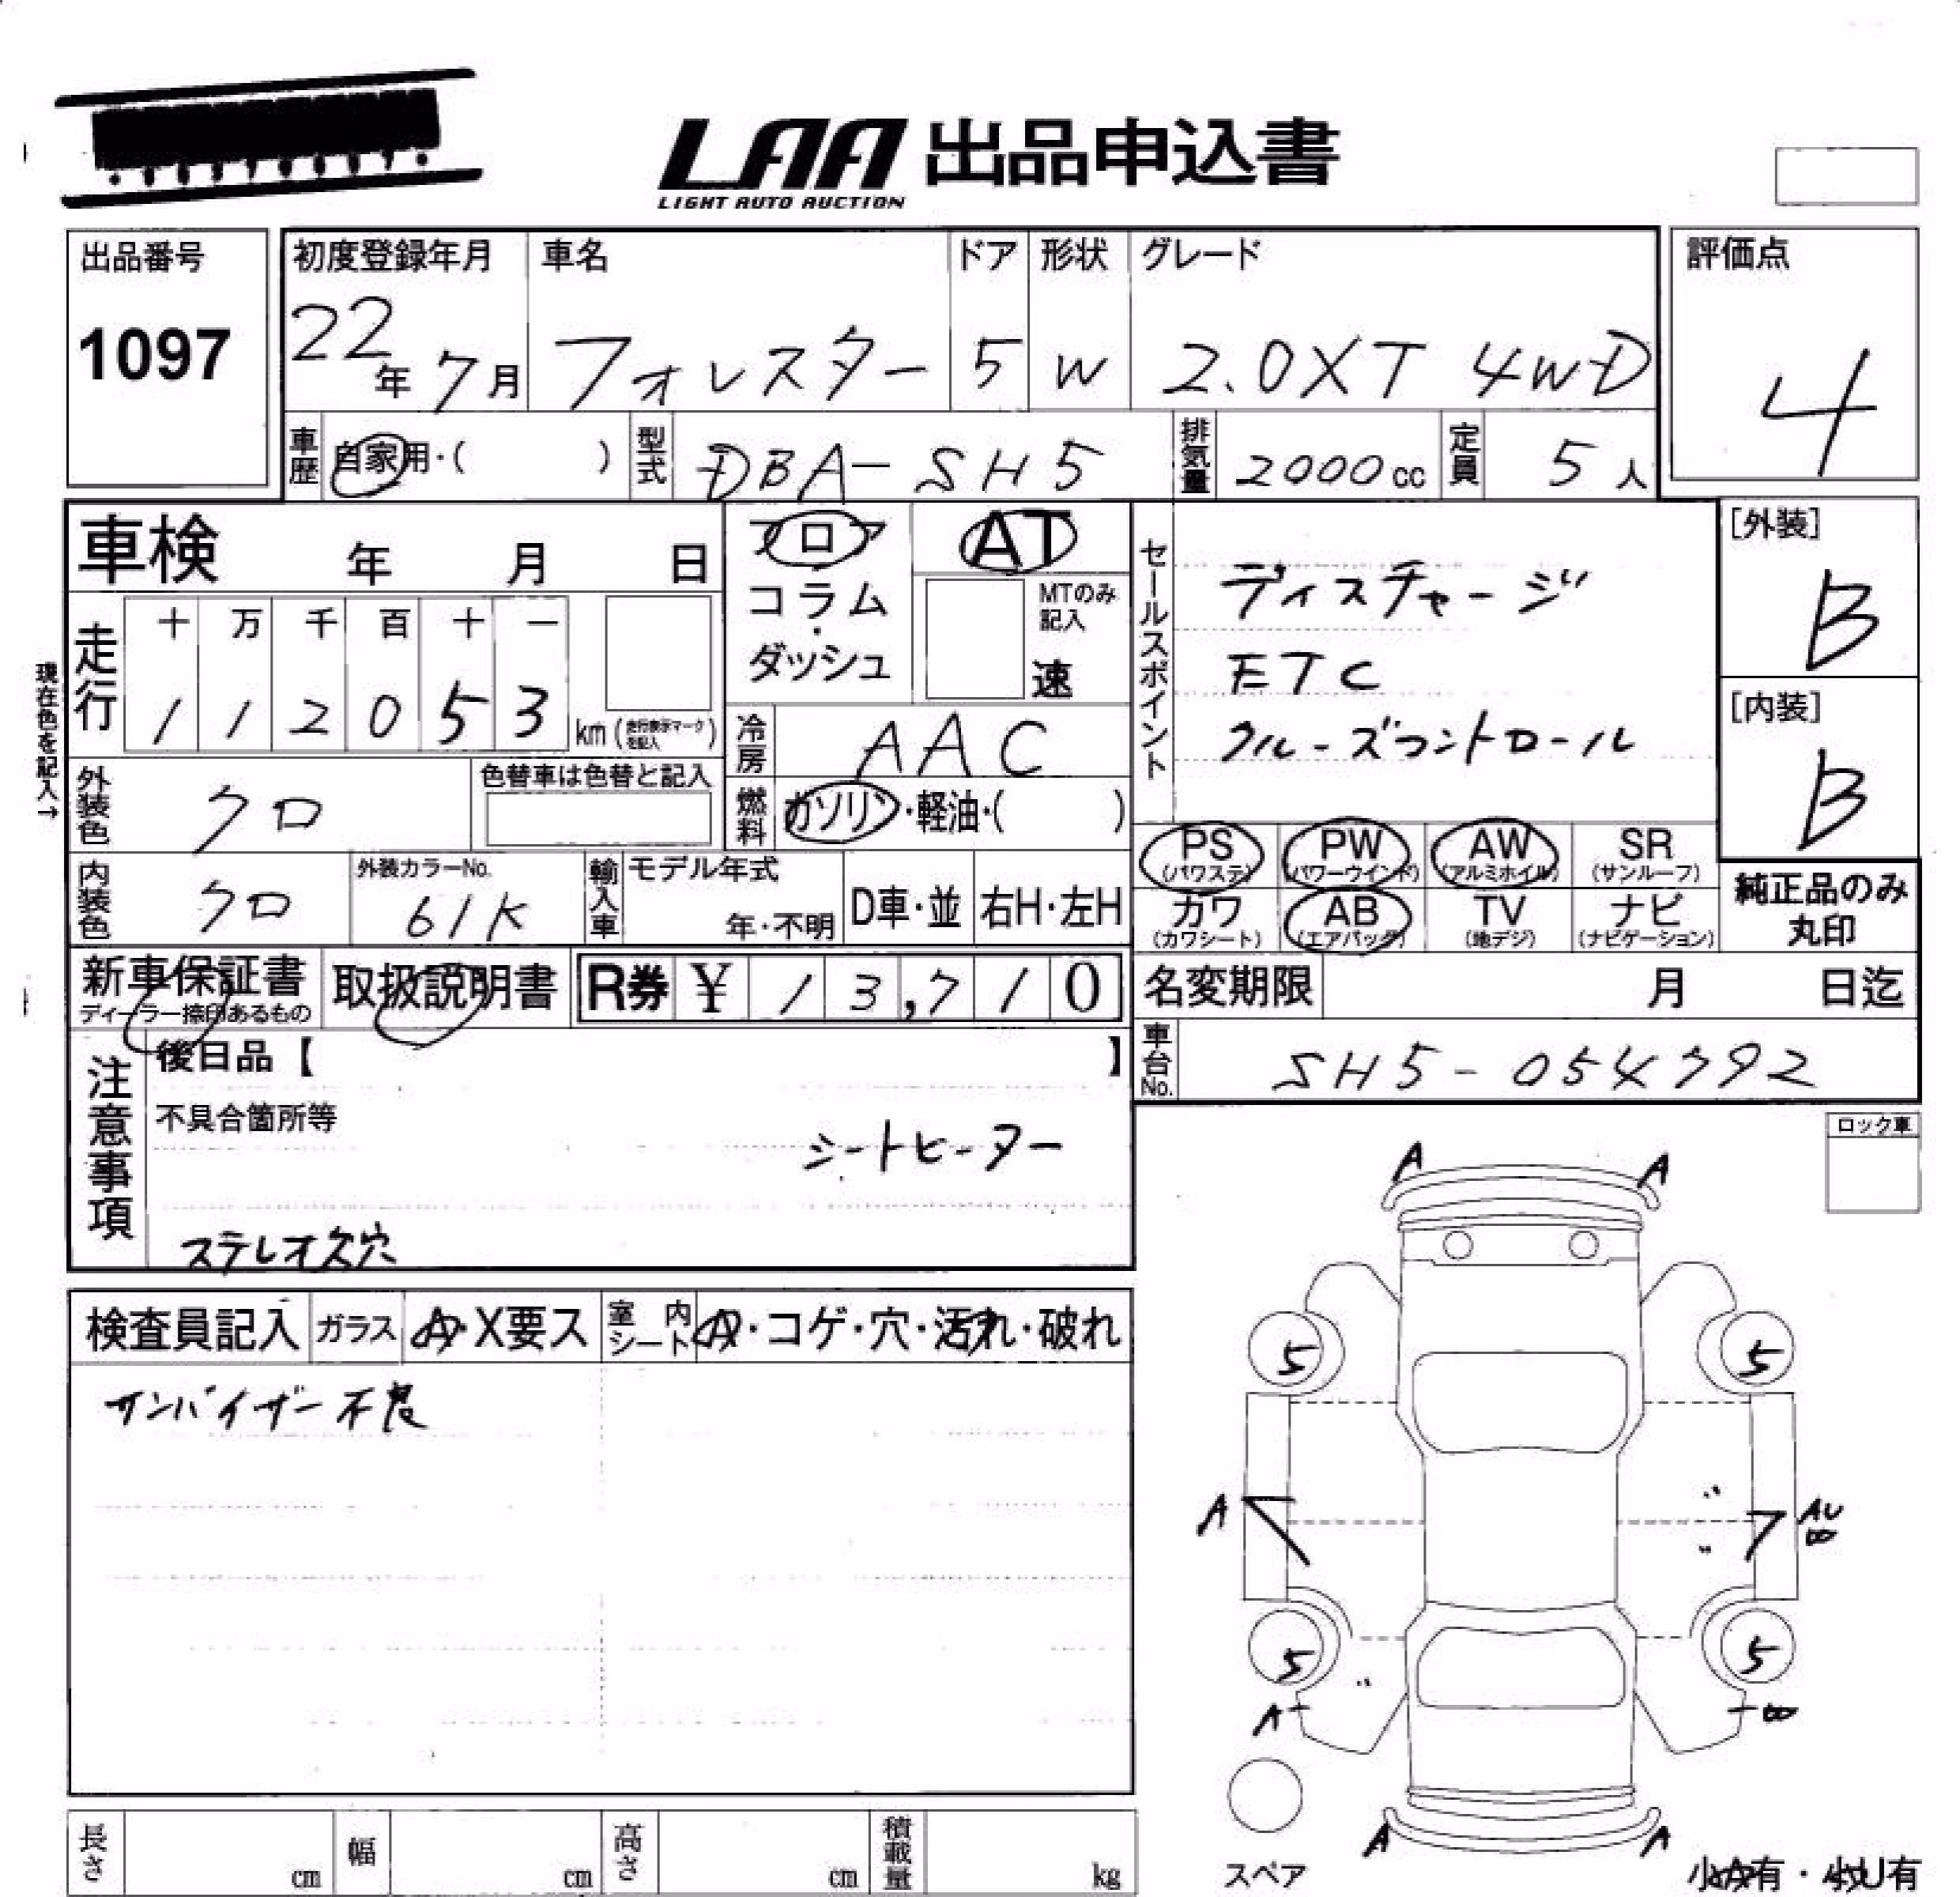 LAA 出品申込書
LIGHT AUTO AUCTION
出品番号
1097
初度登録年月
22年7月
車名
フォレスター
ドア
5
形状
W
グレード
2.0XT 4WD
評価点
4
車歴
自家用・( )
型式
DBA-SH5
排気量
2000cc
定員
5人
車検 年 月 日
走行
十 万 千 百 十 一
1 1 2 0 5 3 km (走行表示マークを記入)
現在色を記入→
フロア
コラム
・
ダッシュ
AT
MTのみ記入
速
冷房
AAC
燃料
ガソリン・軽油・( )
セールスポイント
ディスチャージ
ETC
クルーズコントロール
[外装]
B
[内装]
B
外装色
クロ
色替車は色替と記入
内装色
クロ
外装カラーNo.
61K
輸入車
モデル年式
年・不明
D車・並
右H・左H
PS (パワステ)
PW (パワーウインド)
AW (アルミホイル)
SR (サンルーフ)
カワ (カワシート)
AB (エアバッグ)
TV (地デジ)
ナビ (ナビゲーション)
純正品のみ
丸印
新車保証書
ディーラー捺印あるもの
取扱説明書
R券 ¥ 13,710
名変期限 月 日迄
車台No.
SH5-054792
注意事項
後日品【 】
不具合箇所等
シートヒーター
ステレオ欠穴
ロック車
検査員記入
ガラス
A・X要ス
室内シート
A・コゲ・穴・汚れ・破れ
サンバイザー不良
A A
5 5
A AU
5 5
A
A A
スペア
小A有・小U有
長さ cm
幅 cm
高さ cm
積載量 kg